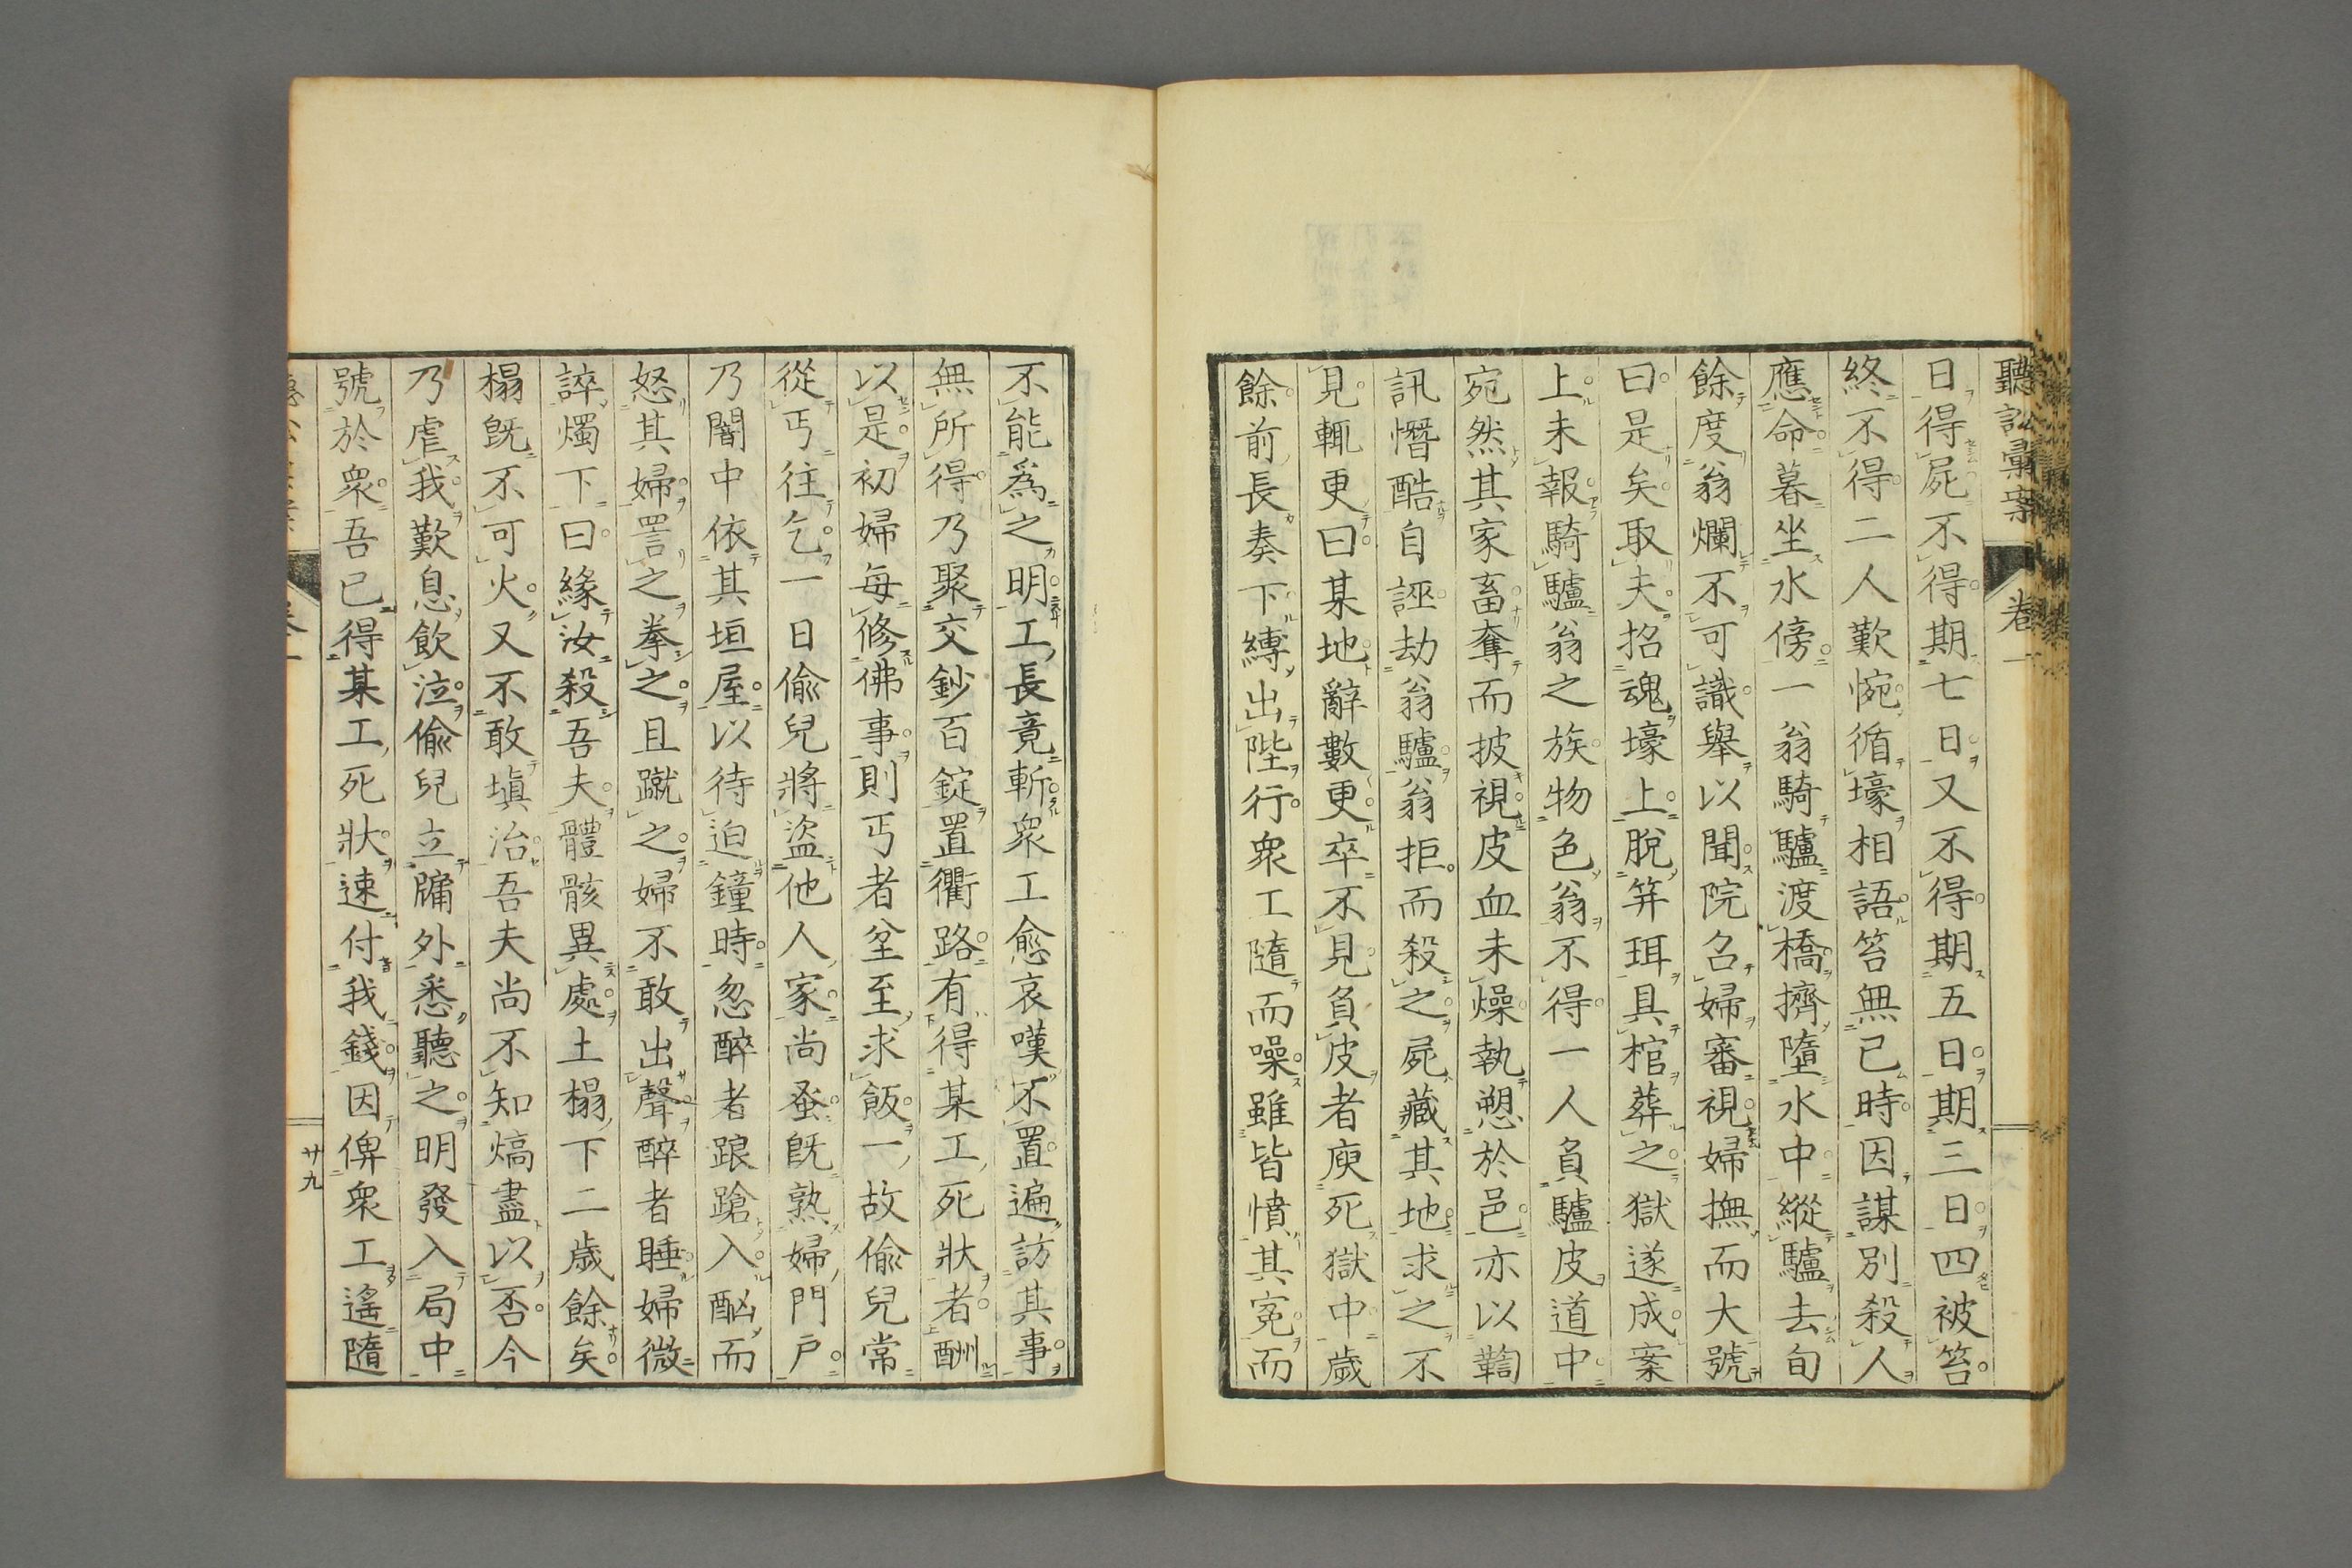 聽訟彙案 卷一
日得屍不得期七日又不得期五日期三日四被笞
終不得二人歎惋循壕相語笞無已時因謀別殺人
應命暮坐水傍一翁騎驢渡橋擠墮水中縱驢去旬
餘度翁爛不可識舉以聞院召婦審視婦撫而大號
曰是矣取夫招魂壕上脫笄珥具棺葬之獄遂成案
上未報騎驢翁之族物色翁不得一人負驢皮道中
宛然其家畜奪而披視皮血未燥執愬於邑亦以鞫
訊憯酷自誣劫翁驢翁拒而殺之屍藏其地求之不
見輒更曰某地辭數更卒不見負皮者庾死獄中歲
餘前長奏下縛出陛行衆工隨而噪雖皆憤其寃而
不能爲之明工長竟斬衆工愈哀嘆不置遍訪其事
無所得乃聚交鈔百錠置衢路有得某工死狀者酬
以是初婦每修佛事則丐者坌至求飯一故偷兒常
從丐往乞一日偷兒將盜他人家尚蚤旣熟婦門戶
乃闇中依其垣屋以待迫鐘時忽醉者踉蹌入酗而
怒其婦詈之拳之且蹴之婦不敢出聲醉者睡婦微
誶燭下曰緣汝殺吾夫體骸異處土榻下二歲餘矣
榻旣不可火又不敢塡治吾夫尚不知熇盡以否今
乃虐我歎息飲泣偷兒立牗外悉聽之明發入局中
號於衆吾已得某工死狀速付我錢因俾衆工遙隨
廿九